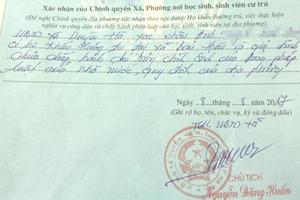 Xác nhận của Chính quyền Xã, Phường nơi học sinh, sinh viên cư trú
(Đề nghị Chính quyền địa phương xác nhận theo nội dung: Hộ khẩu thường trú, việc thực hiện
nghĩa vụ công dân và chấp hành pháp luật của học sinh, sinh viên tại địa phương)
UBND xã Duyên Hà xác nhận
có hộ khẩu thường trú tại xã bản thân và gia đình
chưa chấp hành chủ
luật của nhà nước, quy chế của địa phương
Ngày 8 tháng 8 năm 20
(Ký rõ họ, tên, chức vụ, ký và đóng dấu)
TM. UBND xã
CHỦ TỊCH
Nguyễn Đăng Huân